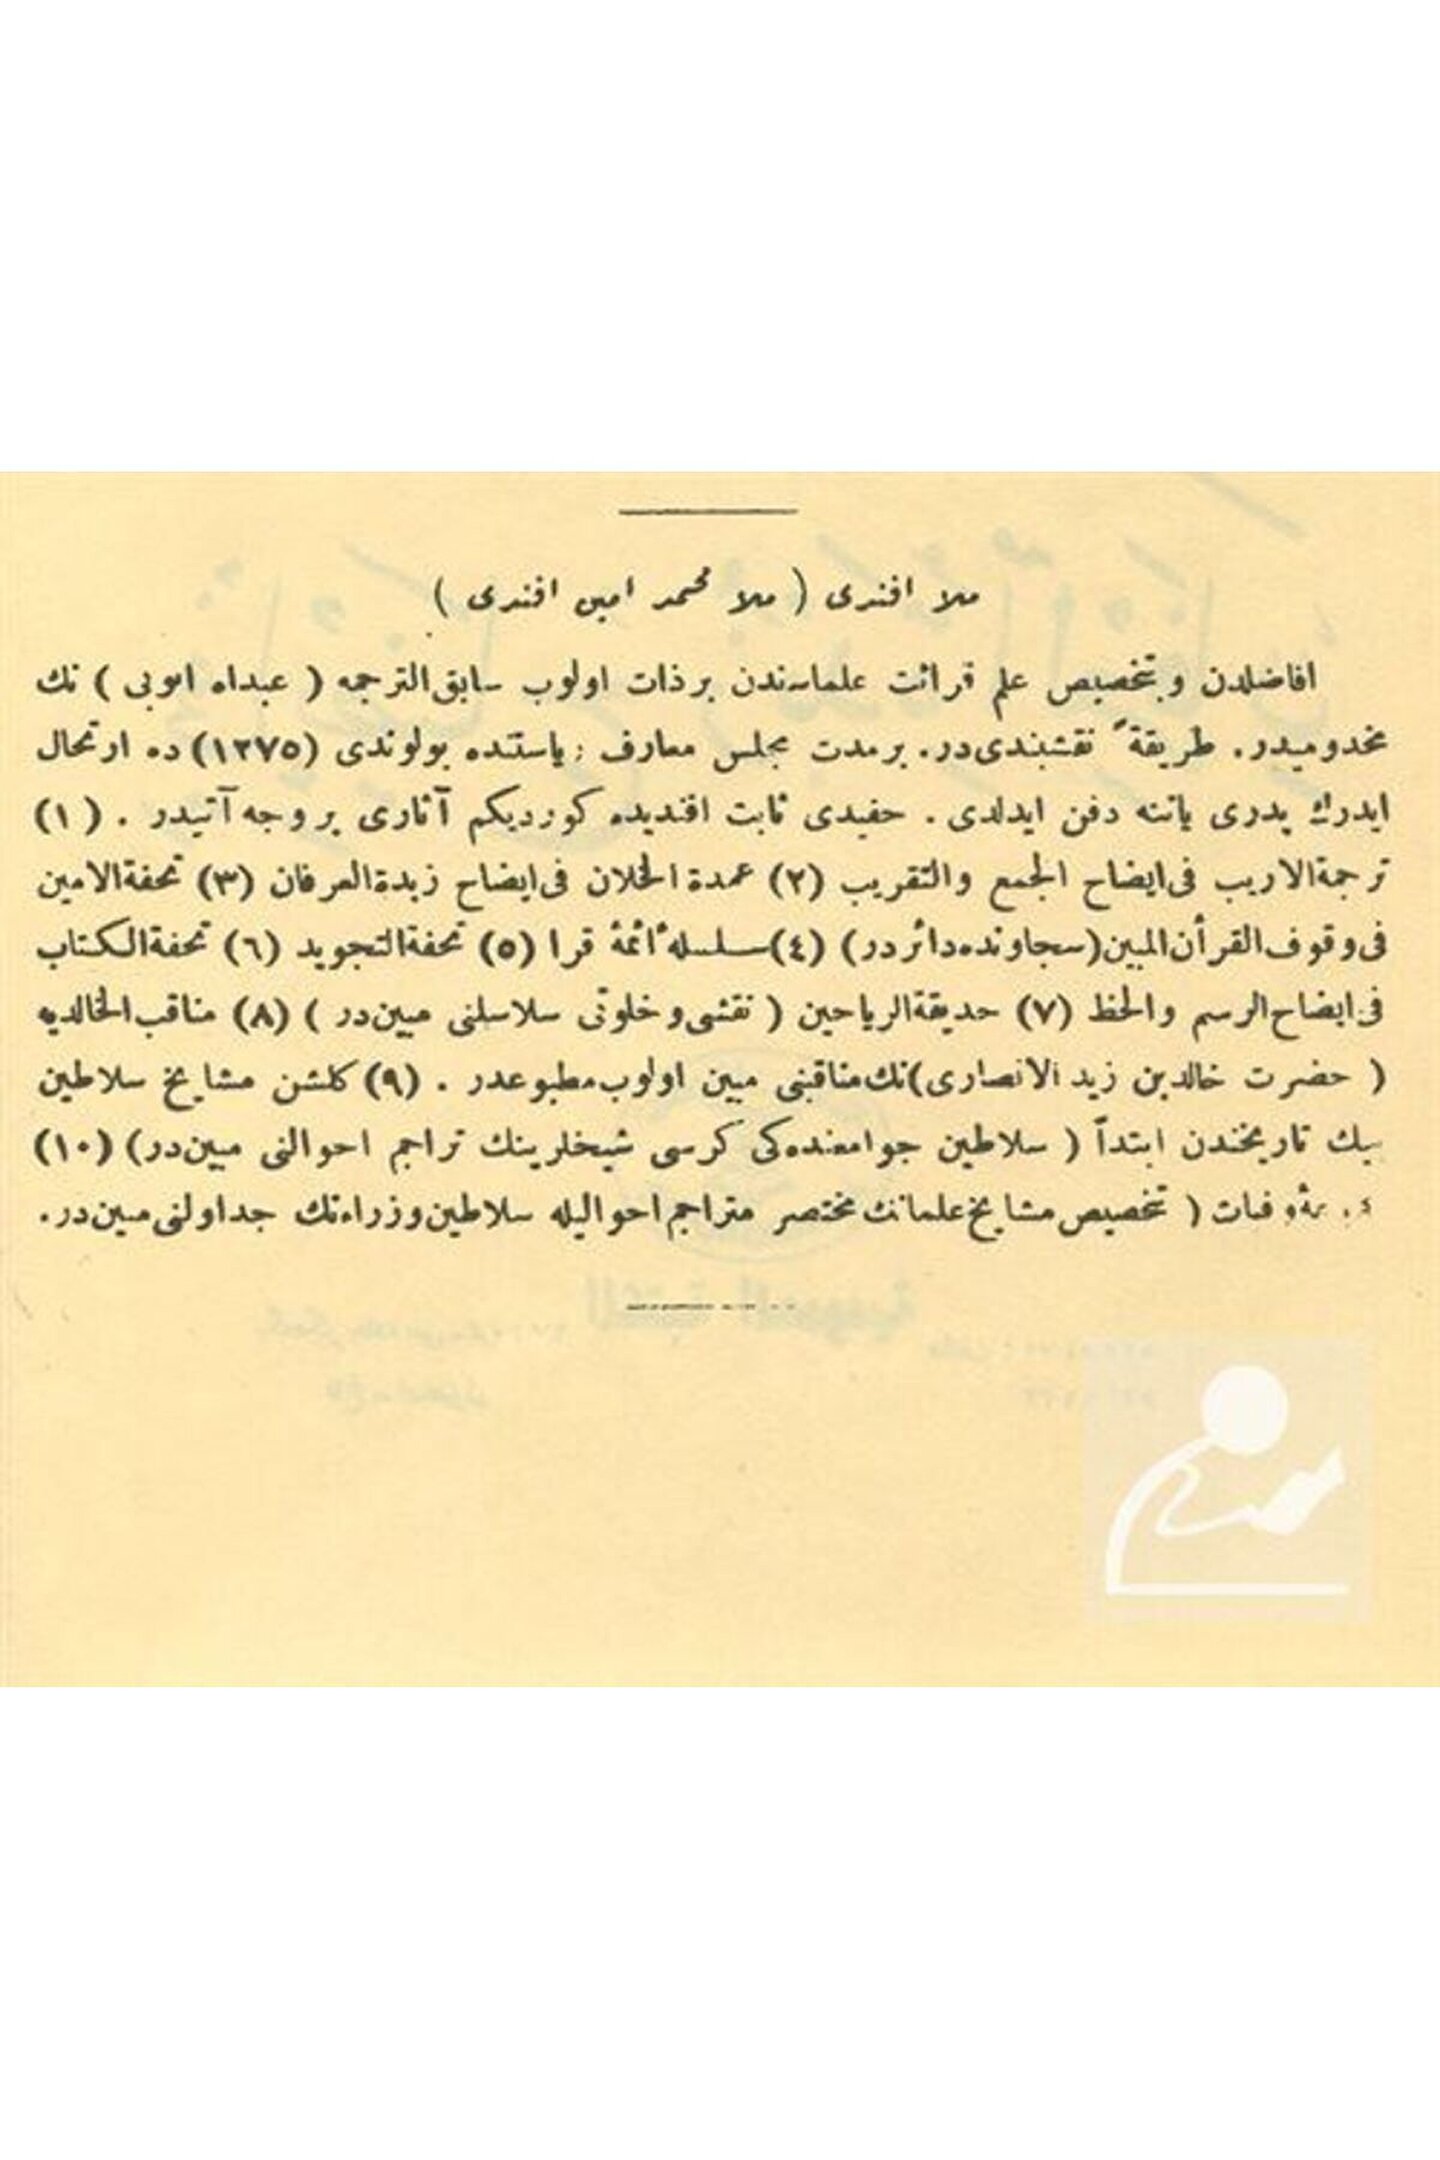 ملا افندی ( ملا محمد امین افندی )
افاضلدن و بتخصیص علم قرائت علماسندن برذات اولوب سابق‌الترجمه ( عبداه ایوبی ) نك
مخدومیدر. طریقةً نقشبندی‌در. برمدت مجلس معارف ریاستنده بولوندی (١٢٧٥) ده ارتحال
ایدرك پدری یاننه دفن ایدلدی. حفیدی ثابت افندیده كوردیكم آثاری بروجه آتیدر . (١)
ترجمة‌الاریب فی‌ایضاح الجمع والتقریب (٢) عمدة الخلان فی‌ایضاح زبدة‌العرفان (٣) تحفة‌الامین
فی‌وقوف‌القرأن‌المبین(سجاونده‌دائردر) (٤)سلسلهٔ ائمهٔ قرا (٥) تحفة‌التجوید (٦) تحفة‌الكتاب
فی‌ایضاح‌الرسم والخط (٧) حدیقة‌الریاحین ( نقشی‌وخلوتی سلاسلنی مبین‌در ) (٨) مناقب‌الخالدیه
( حضرت خالدبن زید الانصاری)نك‌مناقبنی مبین اولوب‌مطبوعدر . (٩) كلشن مشایخ سلاطین
بیك تاریخندن ابتداً ( سلاطین جوامعنده‌كی كرسی شیخلرینك تراجم احوالنی مبین‌در) (١٠)
وفیات ( تخصیص‌مشایخ‌علمانك‌مختصر متراجم‌احوالیله سلاطین‌وزراءنك جداولنی‌مبین‌در.